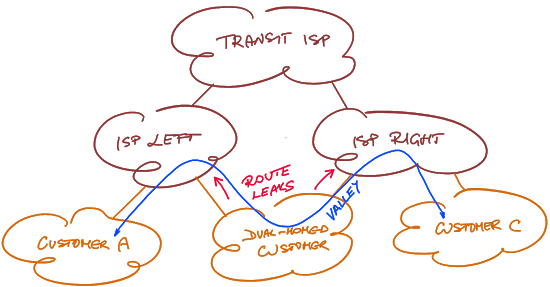 TRANSIT ISP
ISP LEFT
ISP RIGHT
ROUTE
LEAKS
VALLEY
CUSTOMER A
DUAL-HOMED
CUSTOMER
CUSTOMER C